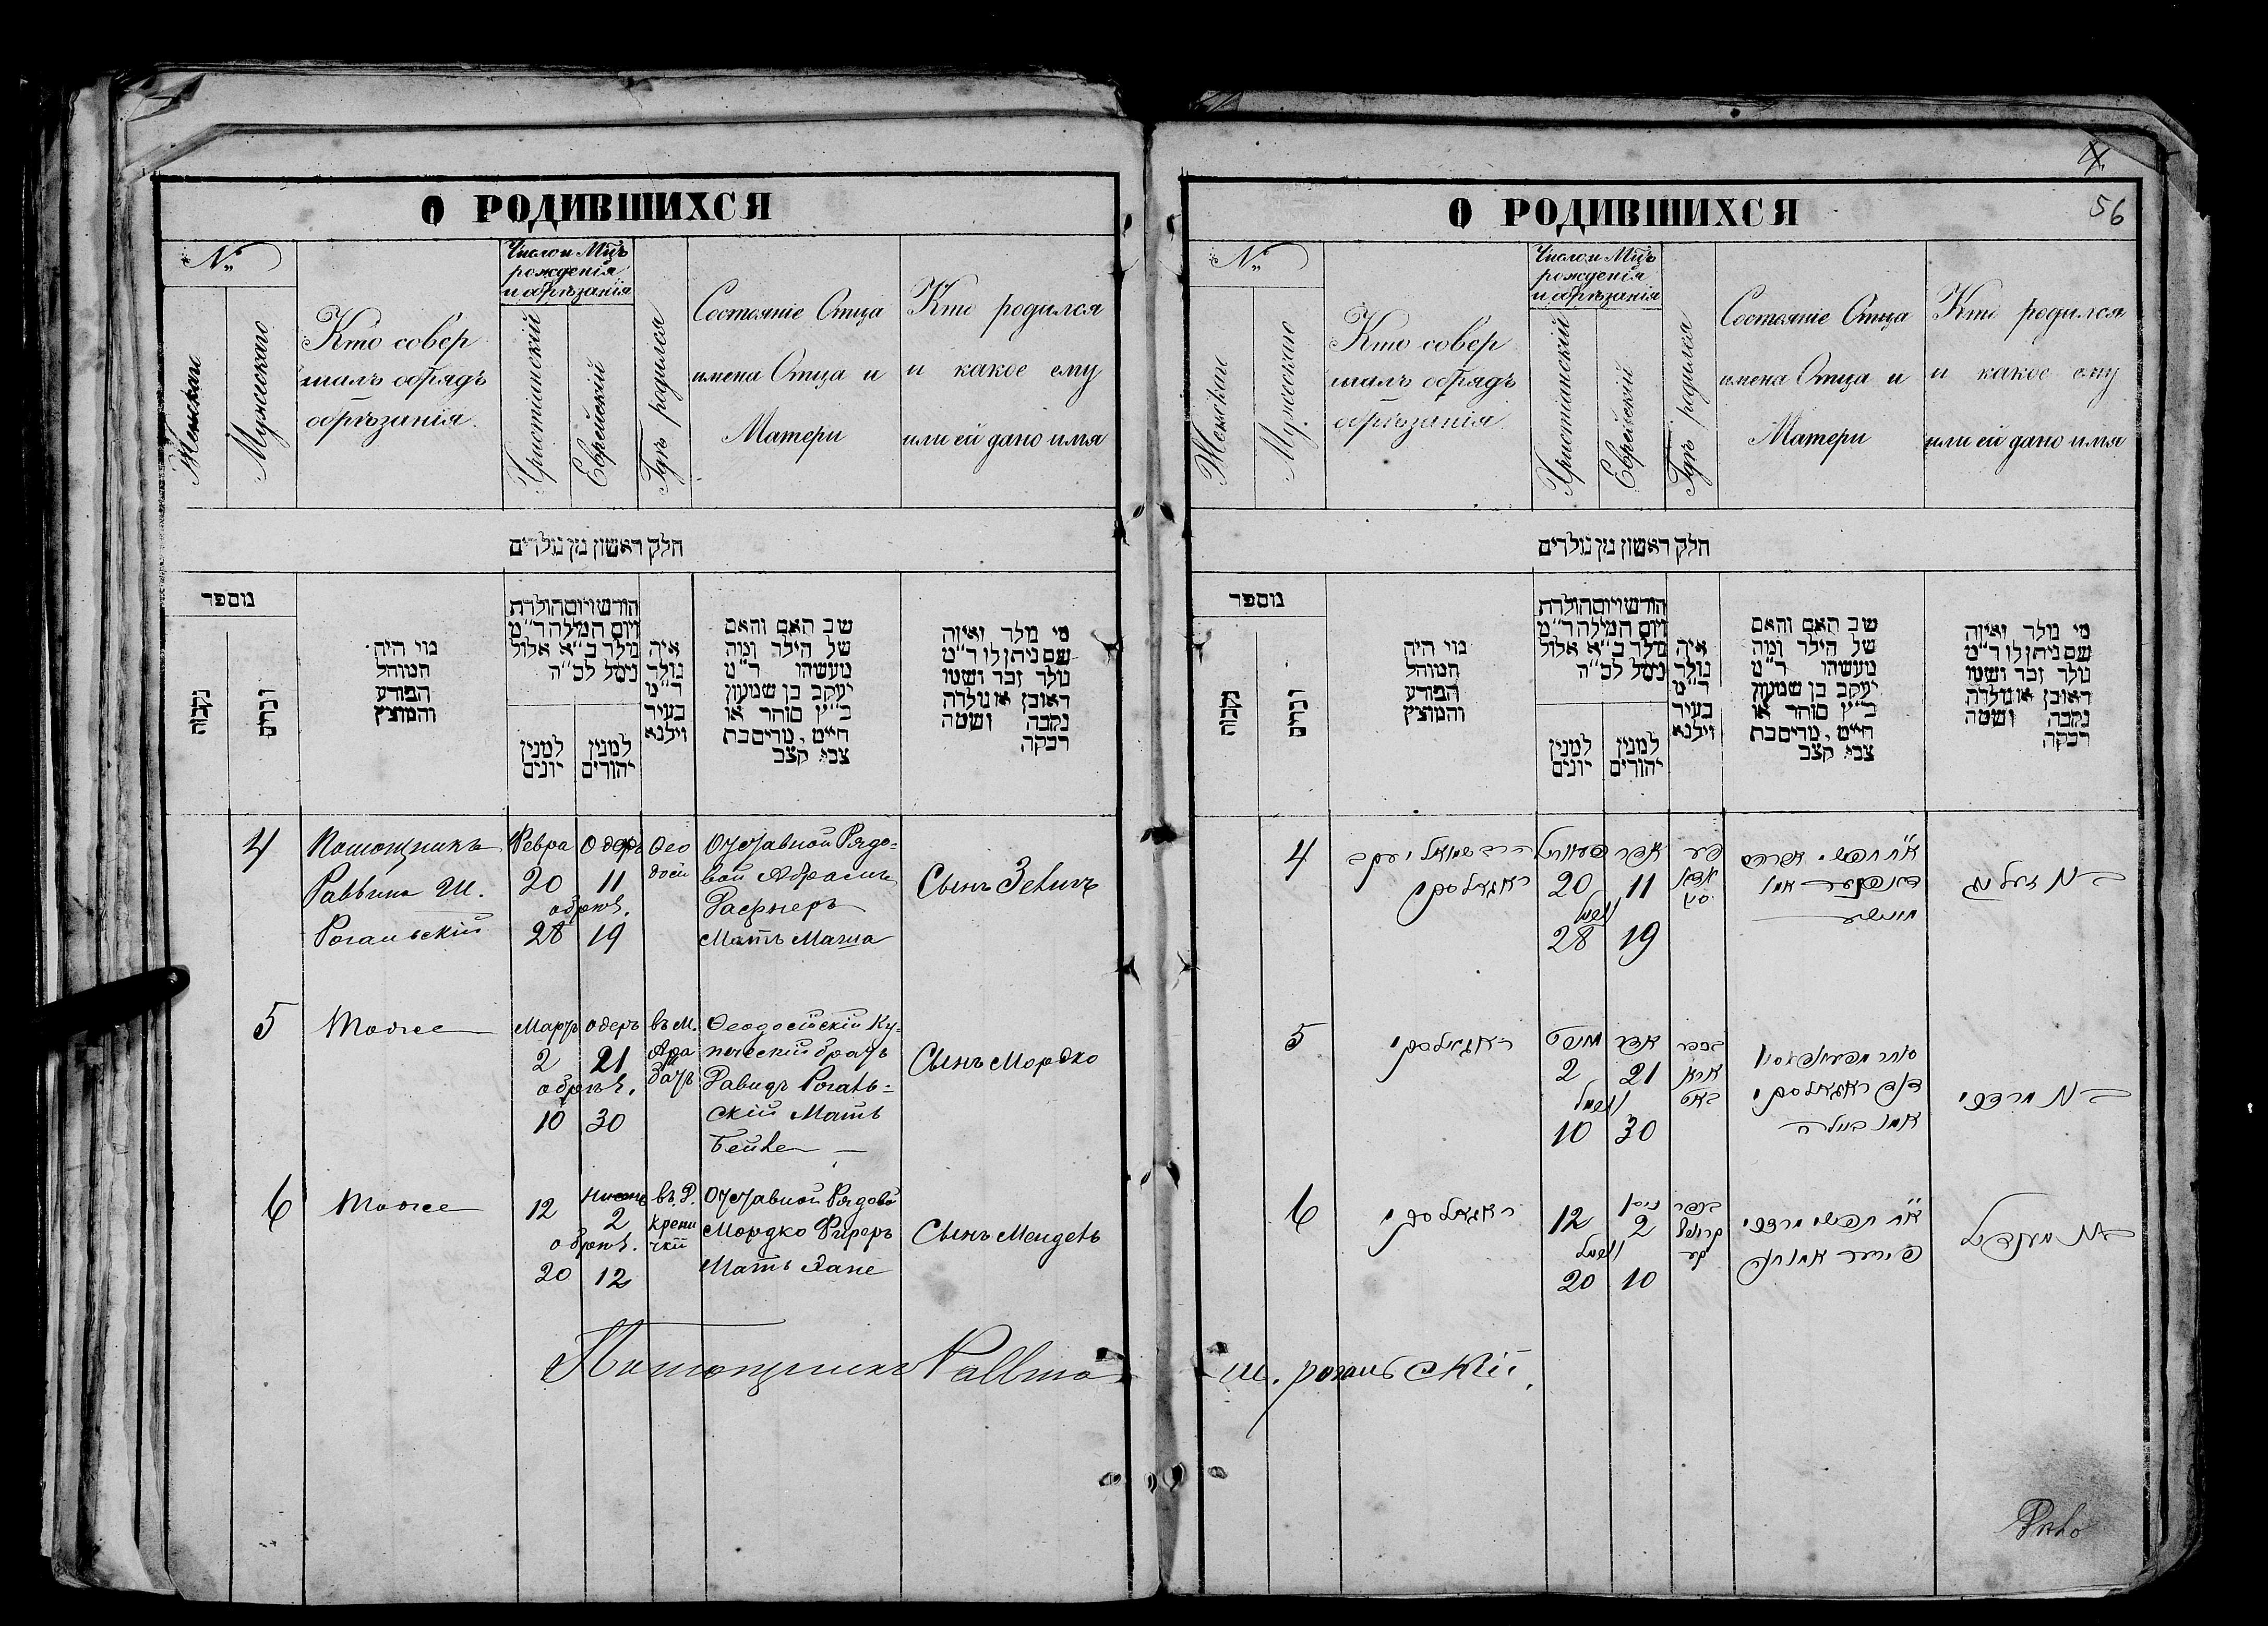 О РОДИВШИХСЯ
№
Женскаго
Мужескаго
Кто совер
шалъ обрядъ
обрѣзанія
Число и Мцъ
рожденія
и обрѣзанія
Христіанскій
Еврейскій
Гдѣ родился
Состояніе Отца
имена Отца и
Матери
Кто родился
и какое ему
или ей дано имя
חלק ראשון מן נולדים
מספר
נקבות
זכרים
מי היה
המוהל
הפורע
והמוצץ
חודש ויום הולדת
ויום המילה ד״מ
נולד ב״א אלול
נימל לס״ה
למנין
יונים
למנין
יהודים
איה
נולד
ד״מ
בעיר
וילנא
שב האם והאם
של הילד ומה
מעשהו ד״מ
יעקב בן שמעון
כ״ץ סוחר או
חייט, מרים בת
צבי קצב
מי נולד ואיזה
שם ניתן לו ד״מ
נולד זכר ושמו
ראובן או נולדה
נקבה ושמה
רבקה
4
Помощникъ
Раввина Ш.
Рогальскій
Февра
20
обрѣз.
28
Одеръ
11
19
Ѳео
досіи
Отставной Рядо=
вой Абрамъ
Мать Маша
Сынъ Зелигъ
5
Тоже
Мартъ
2
обрѣз.
10
одеръ
21
30
въ М.
Ара
батъ
Ѳеодосійскій Ку=
печескій братъ
Давидъ Рогаль=
скій Мать
Бейле
Сынъ Мордко
6
Тоже
12
обрѣз.
20
Нисонъ
2
12
въ Д.
Крени
чкіи
Отставной Рядовой
Мордко Фиреръ
Мать Хане
Сынъ Мендель
Помощникъ Раввина
О РОДИВШИХСЯ
56
№
Женскаго
Мужескаго
Кто совер
шалъ обрядъ
обрѣзанія
Число и Мцъ
рожденія
и обрѣзанія
Христіанскій
Еврейскій
Гдѣ родился
Состояніе Отца
имена Отца и
Матери
Кто родился
и какое ему
или ей дано имя
חלק ראשון מן נולדים
מספר
נקבות
זכרים
מי היה
המוהל
הפורע
והמוצץ
חודש ויום הולדת
ויום המילה ד״מ
נולד ב״א אלול
נימל לס״ה
למנין
יונים
למנין
יהודים
איה
נולד
ד״מ
בעיר
וילנא
שב האם והאם
של הילד ומה
מעשהו ד״מ
יעקב בן שמעון
כ״ץ סוחר או
חייט, מרים בת
צבי קצב
מי נולד ואיזה
שם ניתן לו ד״מ
נולד זכר ושמו
ראובן או נולדה
נקבה ושמה
רבקה
4
הרב שמואל יעקב
ראגאלסקי
20
ונימל
28
אדר
11
19
5
ראגאלסקי
מארט
2
ונימל
10
אדר
21
30
דוד ראגאלסקי
אמו ביילה
בן מרדכי
6
ראגאלסקי
12
ונימל
20
ניסן
2
10
בן מענדיל
Ш. Рогальскій.